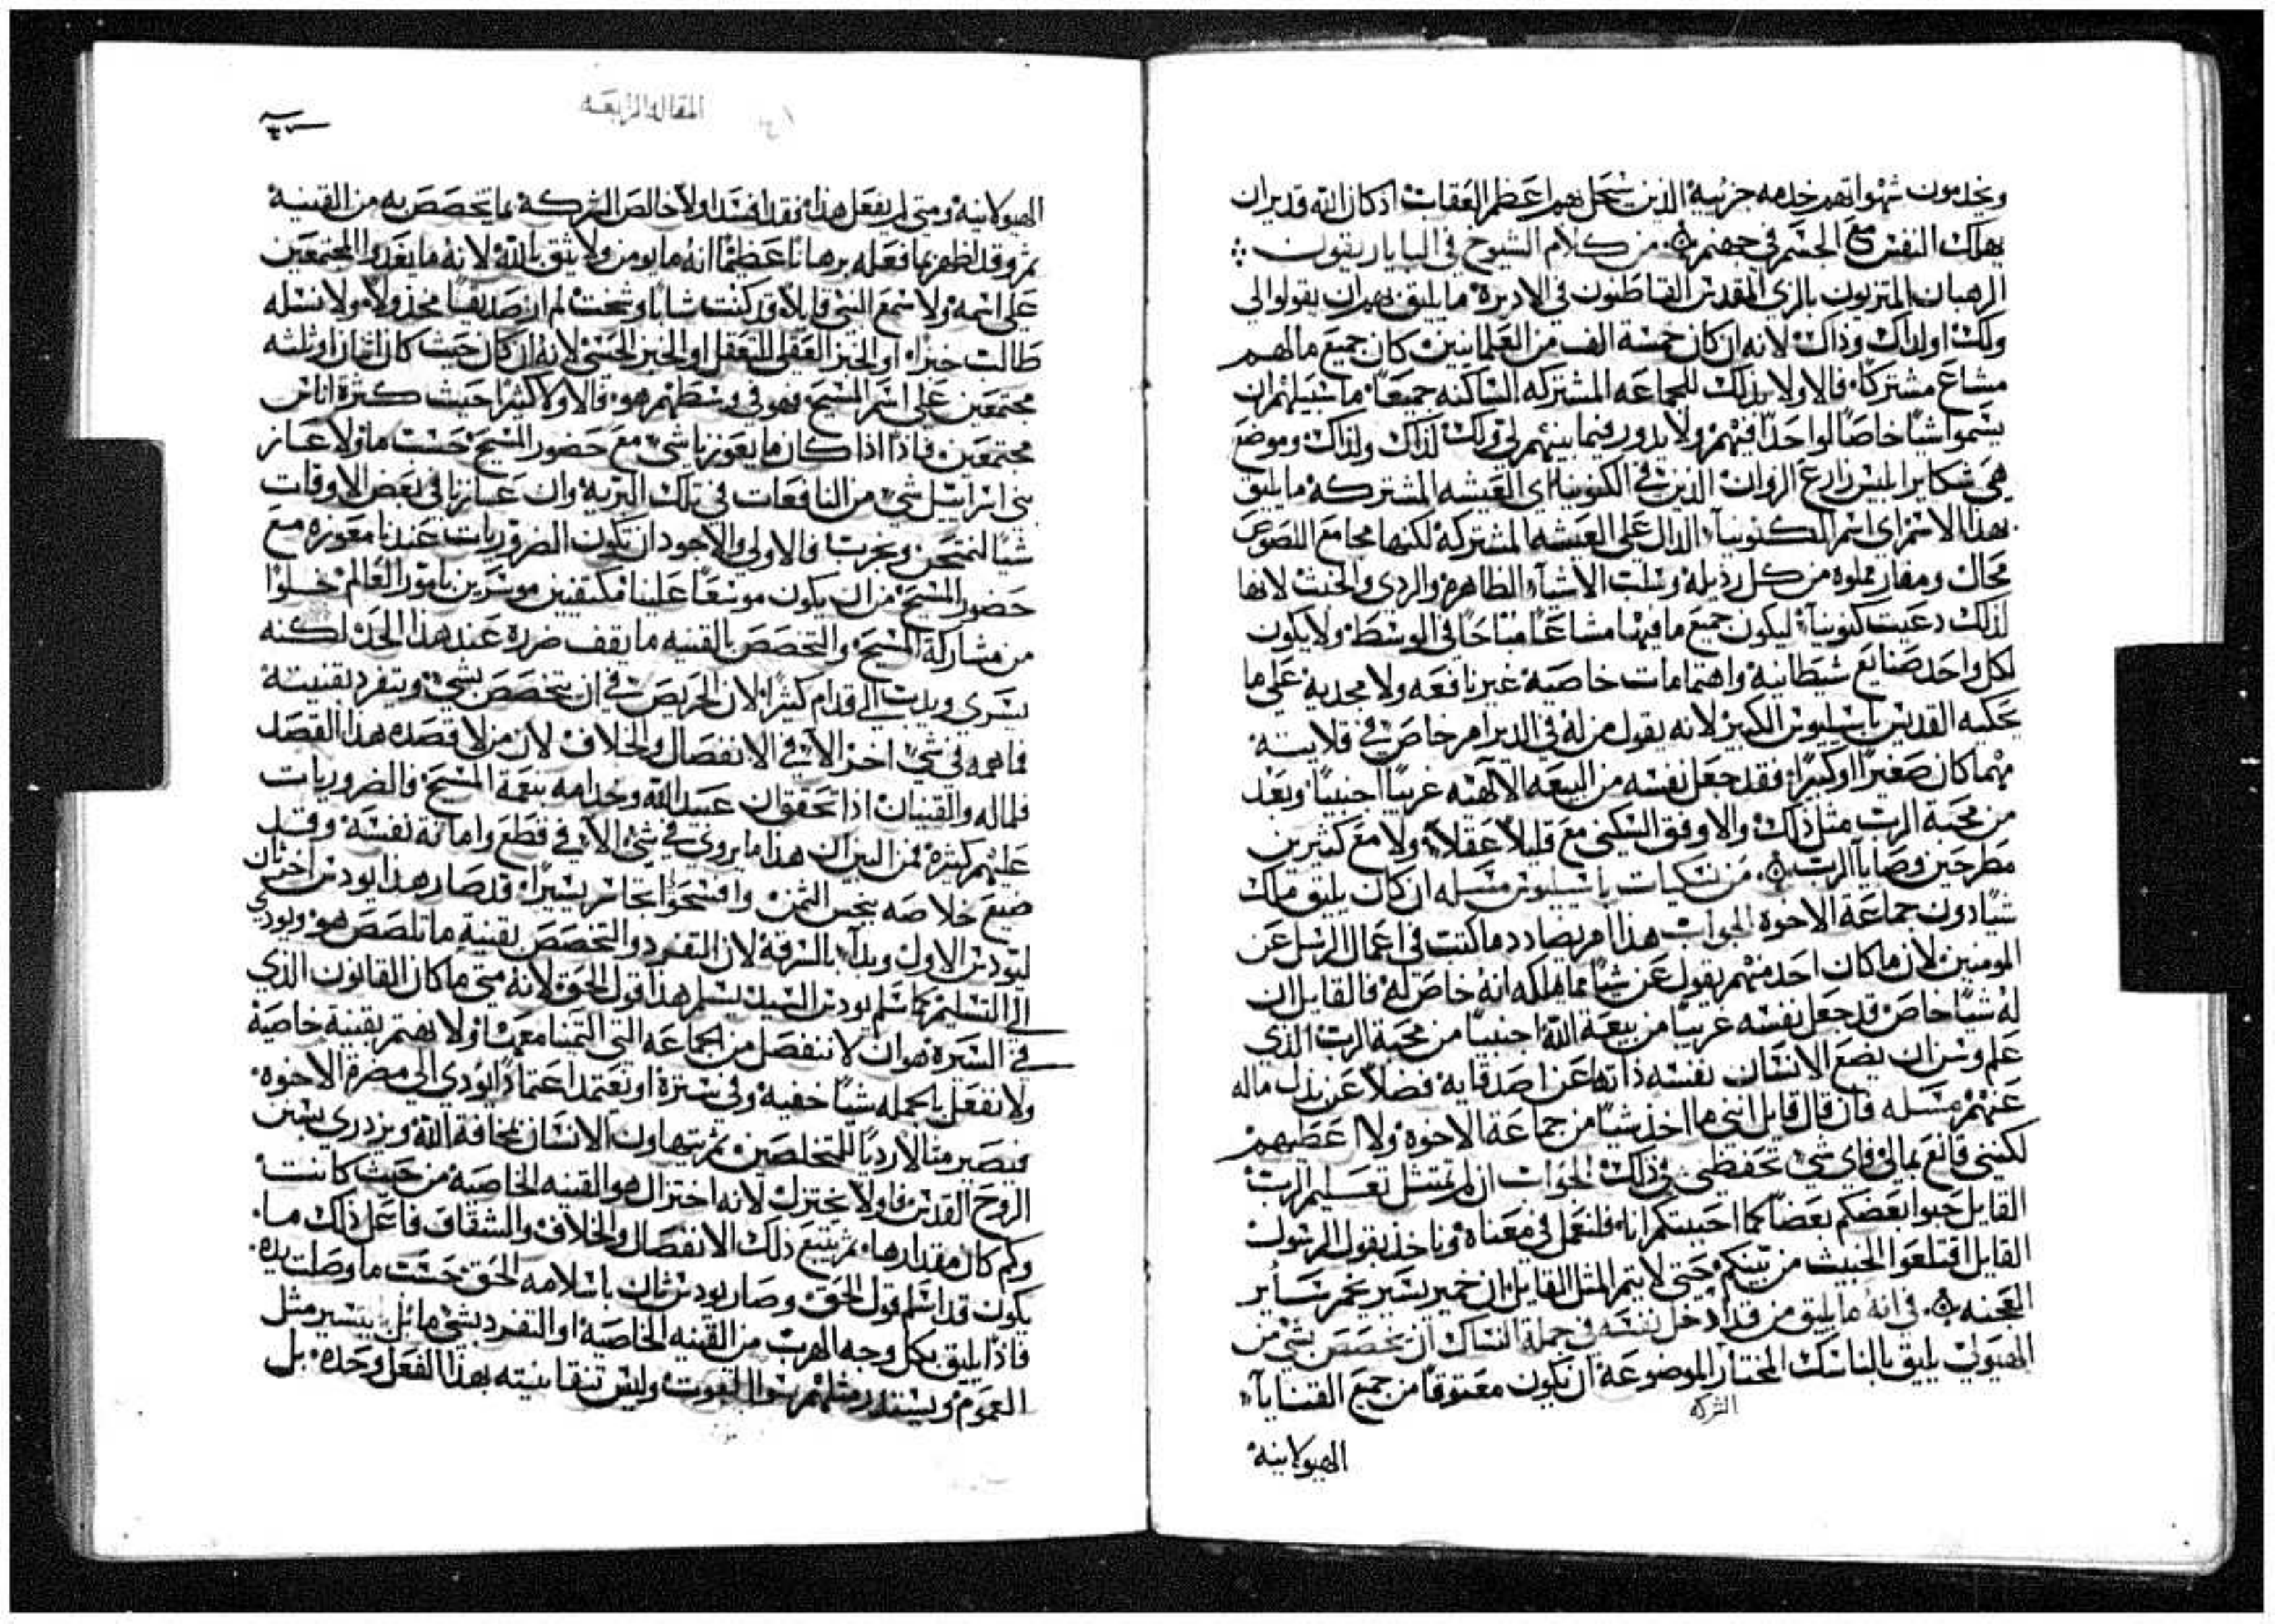 ويخدمون شهواتهم خدمه جزئية الذين سيحل بهم اعظم العقاب اذ كان الله قدير ان
يهلك النفس مع الجسم في جهنم من كلام الشيوخ في البابا ريقون
الرهبان المتزيون بالزي المقدس القاطنون في الاديرة ما يليق بهم ان يقولوا لي
ولك او لذاك وذاك لانه ان كان خمسة الف من العلمانيين كان جميع مالهم
مشاع مشتركا فالاولا بذلك للجماعه المشتركه الساكنه جميعا ما سبيلهم ان
يسموا شيا خاصا لواحدا فيهم ولا يدور فيما بينهم لي ولك لذاك ولذاك وموضع
هي شكاير ابليس زارع الزوان الذين في الكنوبيا اي العيشه المشتركة ما يليق
بهذا الاسم اي اسم الكنوبيا الدال على العيشه المشتركة لكنها مجامع اللصوص
محال ومغاير مملوه من كل رذيلة وسلب الاشياء الطاهره والردي والخبث لانها
لذلك دعيت كنوبيا ليكون جميع ما فيها مشاعا مباحا في الوسط ولا يكون
لكل واحد صنايع شيطانية واهتمامات خاصية غير نافعه ولا مجدية على ما
يحكيه القديس باسيليوس الكبير لانه يقول من له في الدير امر خاص في قلايته
مهما كان صغيرا او كبيرا فقد جعل نفسه من البيعه الالهيه غريبا اجنبيا وبعد
من محبة الرب مثل ذلك والاوفق السكني مع قليلا عقلا ولا مع كثيرين
مطرحين وصايا الرب من نسكيات باسيليوس مسله ان كان يليق ملك
شيا دون جماعة الاخوة الجواب هذا امر يضادد ما كتب في اعمال الرسل عن
المومنين لان ما كان احد منهم يقول عن شيا مما يملكه انه خاص له فالقايل ان
له شيا خاص قد جعل نفسه غريبا من بيعة الله اجنبيا من محبة الرب الذي
علم وسن ان يضع الانسان نفسه ذاتها عن اصدقايه فضلا عن بذل ماله
عنهم مسله فان قال قايل انني ما اخذ شيا من جماعة الاخوة ولا اعطيهم
لكنني قانع بمالي فاي شي تحفظني في ذلك الجواب ان لم يمتثل تعليم الرب
القايل حبوا بعضكم بعضا كما احببتكم انا فلنعمل في معناه وناخذ بقول الرسول
القايل اقتلعوا الخبيث من بينكم حتى لا يتم المثل القايل ان خمير يسير يخمر سائر
العجنه في انه ما يليق من قد ادخل نفسه في جملة النساك ان يخصص بشي من
الهيولي يليق بالناسك المختار الموضوعة ان يكون معتوقا من جميع القنايا
الشركه
الهيولانية
المقاله الرابعه
الهيولانية ومتى لم يفعل هذا فقد افسد اولا خالص الشركة بما تخصص به من القينية
ثم وقد اظهر بما فعله برهانا عظيما انه ما يومن ولا يثق بالله لانه ما يغدوا المجتمعين
على اسمه ولا سمع النبي قايلا قد كنت شابا وشخت لم ار صديقا مخذولا ولا نسله
طالب خبزا او الخبز العقلي للتعقل او الخبز الحسي لانه ان كان حيث كان اثنان او ثلثه
مجتمعين على اسم المسيح فهو في وسطهم هو فالاولا كثيرا حيث كثرة اناس
مجتمعين فاذا اذا كان ما يعوزنا شي مع حضور المسيح حسب ما ولا عاز
بني اسرائيل شي من النافعات في تلك البرية وان عازنا في بعض الاوقات
شيا لنمتحن ونجرب فالاولى والاجود ان تكون الضروريات عندنا معوزه مع
حضور المسيح من ان يكون موسعا علينا مكتفيين موسرين بامور العالم خلوا
من مشاركة المسيح والتخصص بالقنيه ما يقف ضرره عند هذا الحد لكنه
يسري ويدب الى قدام كثيرا لان الحريص في ان يتخصص بشي ويتفرد بقنيته
فما همه في شي اخر الا في الانفصال والخلاف لان من لا قصده هذا القصد
فلماله والقنيان اذا تحققوا ان عبيد الله وخدامه بنعمة المسيح فالضروريات
عليهم كثيرة فمن البين ان هذا ما يروي في شي الا في قطع واماتة نفسه وقد
ضيع خلاصه ببخس الثمن وافتتحوا بخاس يسيرا قد صار هذا يودس اخر ثان
ليودس الاول وبدا بالسرقة لان التفرد والتخصص بقنية ما تلصص هو ويودي
الى التسليم كما سلم يودس السيد يسلم هذا قول الحق لانه متى ما كان القانون الذي
في السيرة هو ان لا ننفصل من الجماعه التي التمينا معها ولا نهتم بقنية خاصية
ولا نفعل بالجمله شيا خفية وفي سترة او نعتمد اعتمادا يودي الى مضرة الاخوه
فيصير مثالا رديا للمتخلصين ثم يتهاون الانسان بمخافة الله ويزدري بسنن
الروح القدس فاولا يختزل لانه اختزال هو القنيه الخاصية من حيث كانت
وكم كان مقدارها ثم يتبع ذلك الانفصال والخلاف والشقاق فاعل ذلك ما
يكون قد اسلم قول الحق وصار يودس ثان باسلامه الحق حسب ما وصلت يده
فاذا يليق بكل وجه الهرب من القنيه الخاصية او التفرد بشي ما
العموم وليس تنقا نيته بهذا الفعل وحده بل